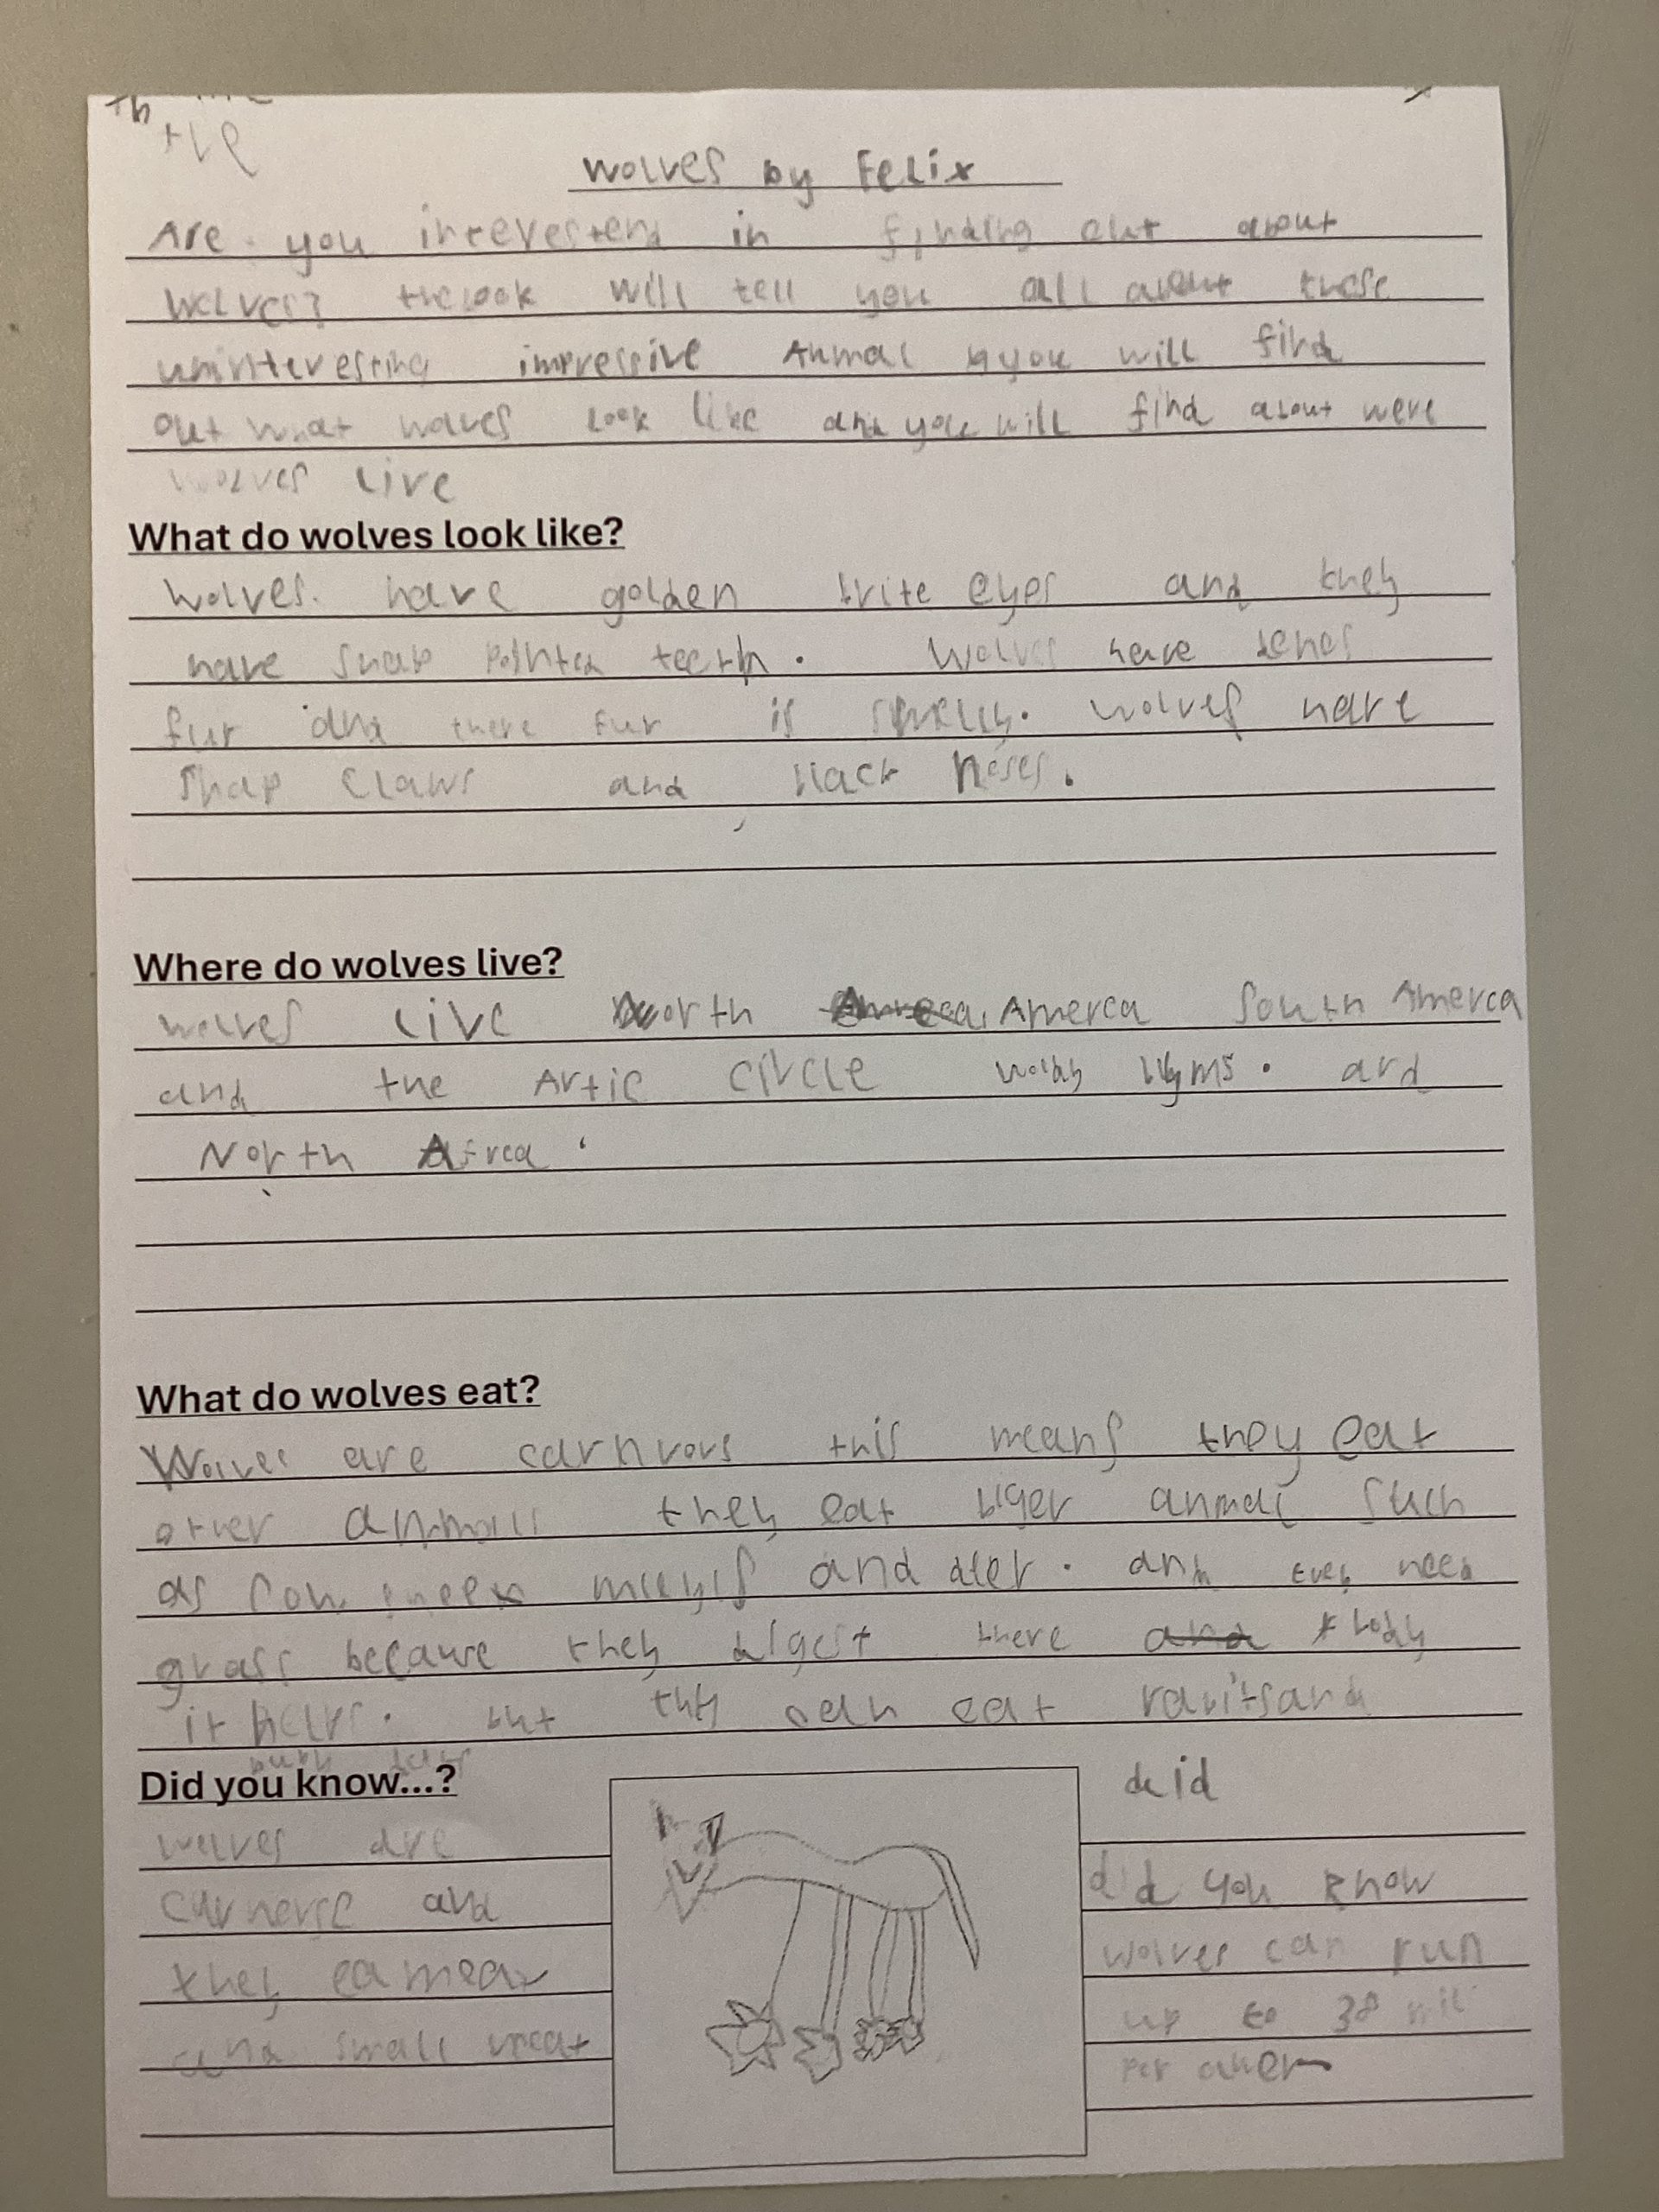 wolves by Felix
Are you intevestend in finding out about
wolves? the book will tell you all about these
uninteresting impressive Anmal you will find
out what wolves look like and you will find about were
wolves live
What do wolves look like?
wolves. have golden brite eyes and they
have shap pointed teeth. Wolves have
fur and there fur is wolves have
shap claws and black noses.
Where do wolves live?
wolves live North Amerca South Amerca
and the Artic circle and
North Africa
What do wolves eat?
Wolves are carnivors this means they eat
other they eat biger anmals such
as and deer. and even need
grass because they digest there body
it helps. but they can eat and
Did you know...?
wolves are
and
they
and small meat
did
did you know
wolves can run
up to 38
per